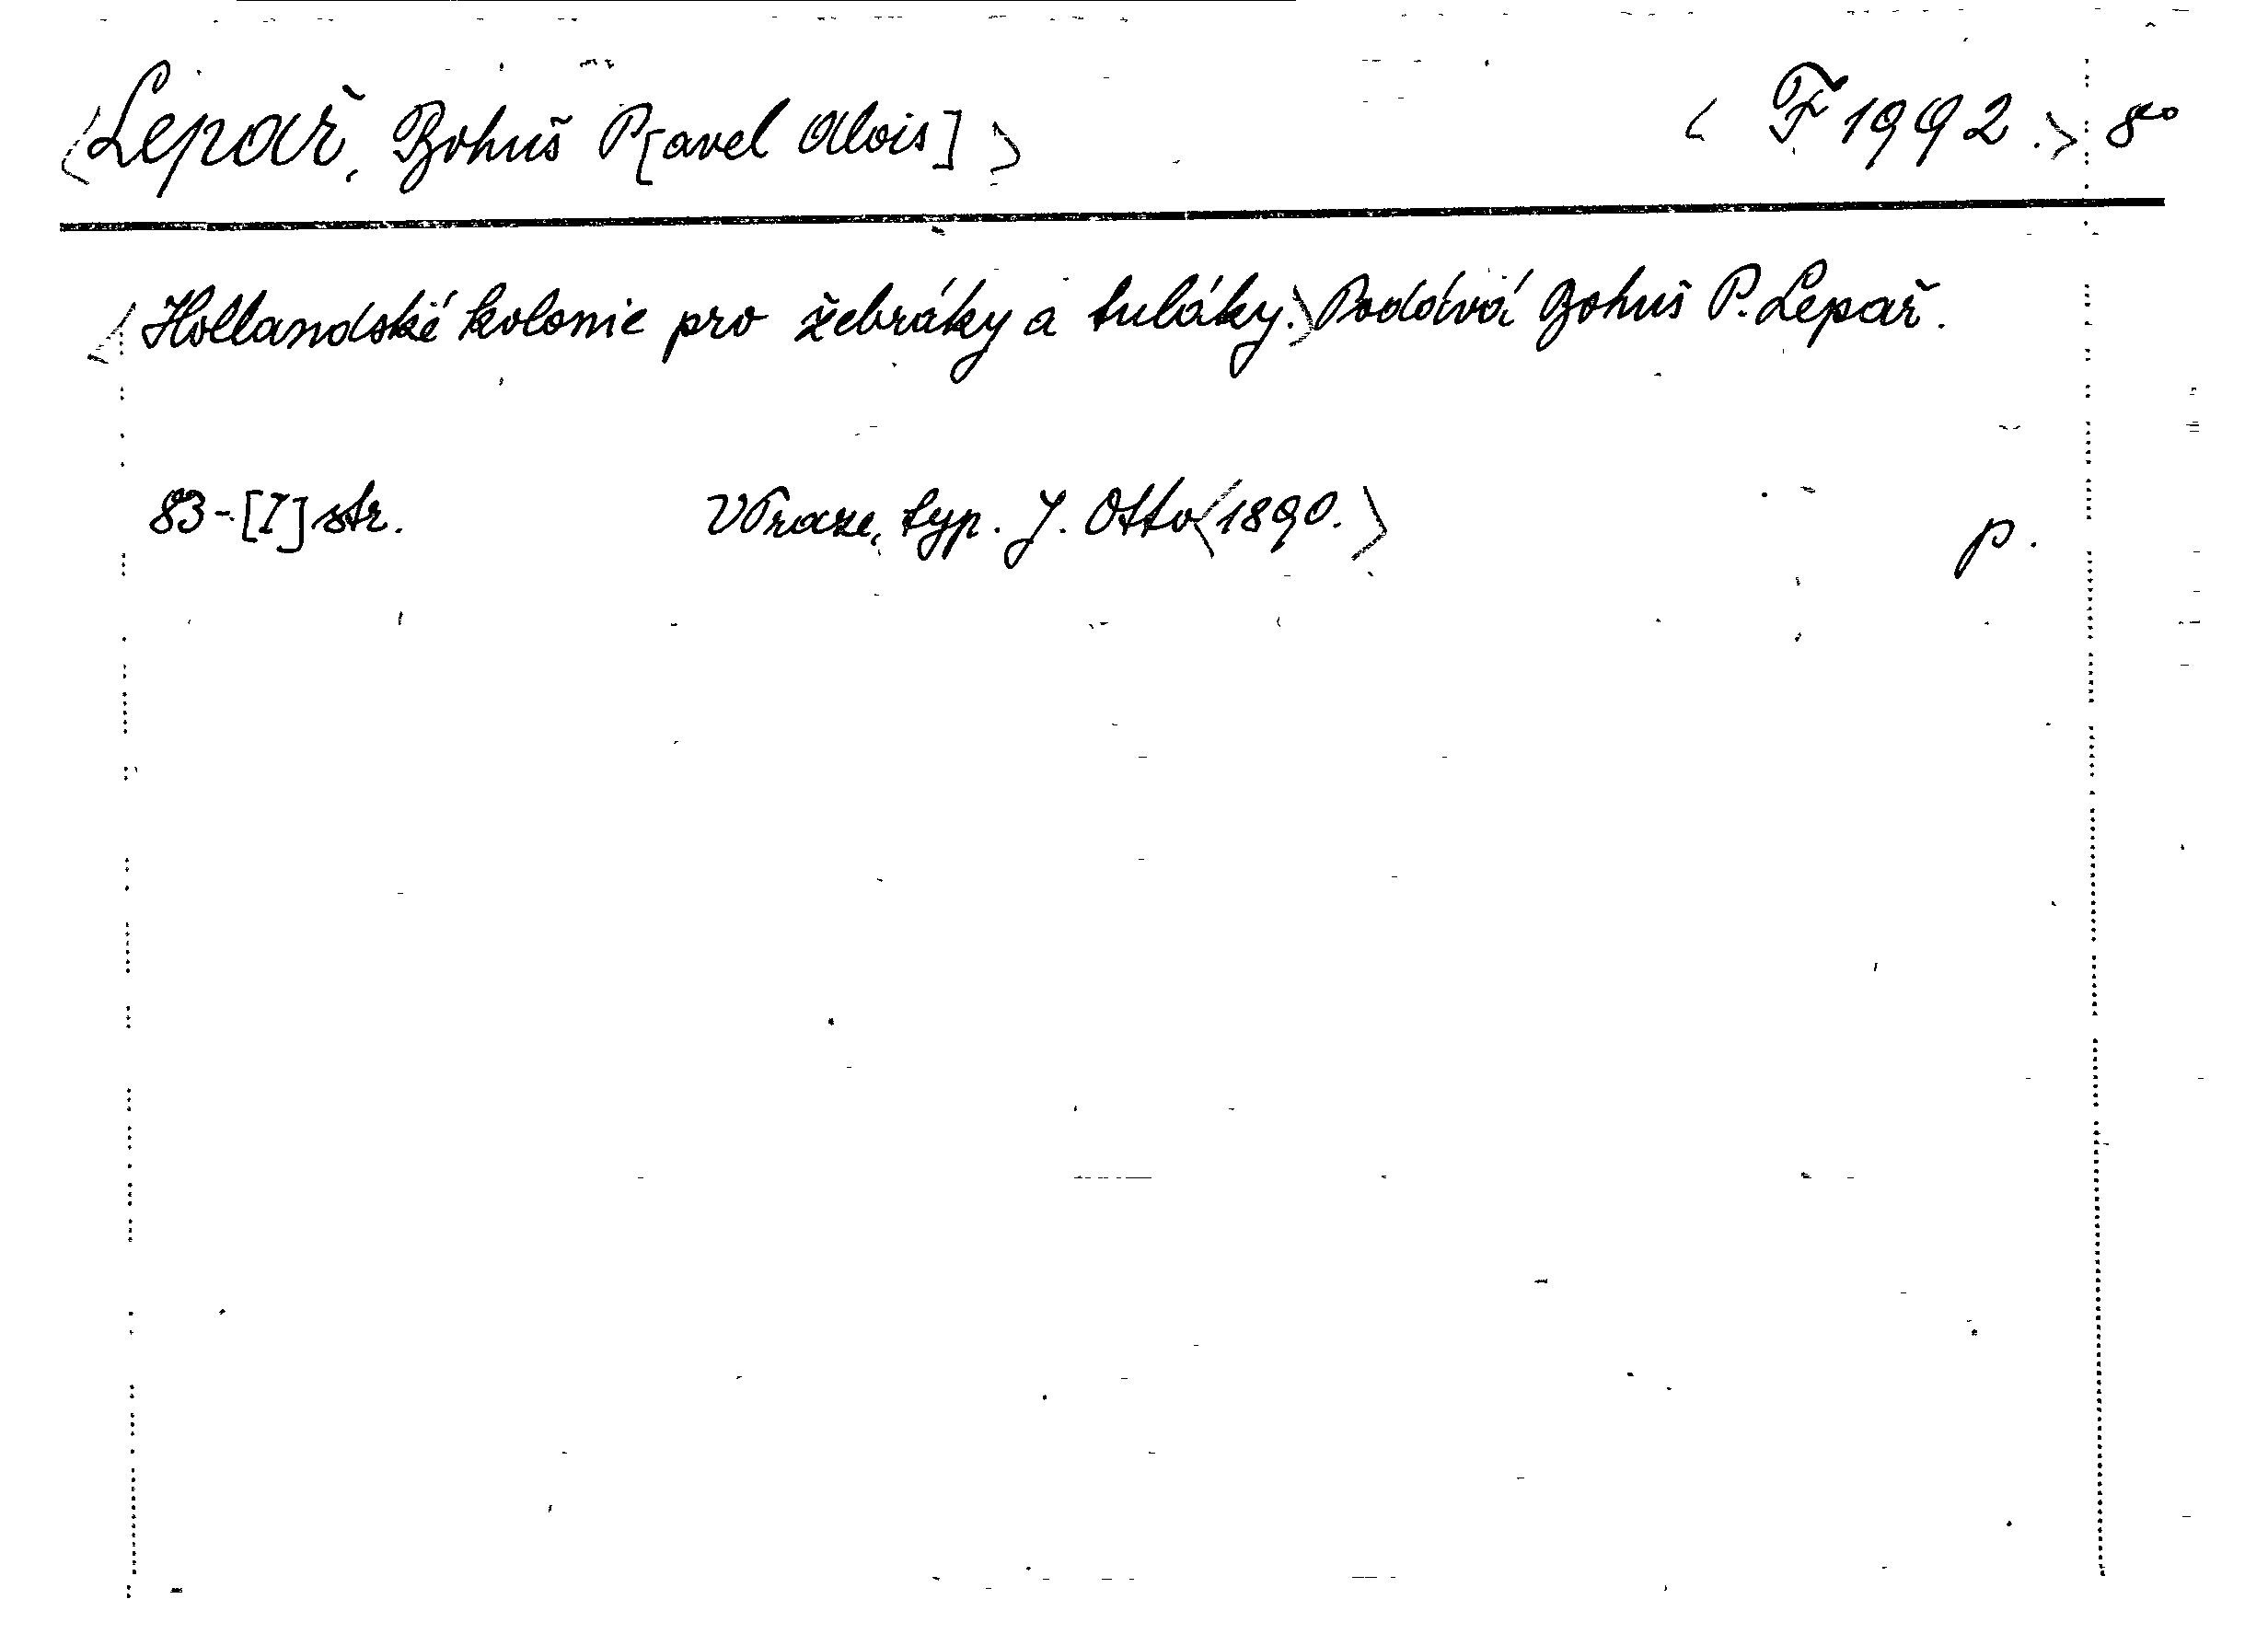 <Lepař, Bohuš P[avel Alois]> < F 1992.> 8°
<Hollandské kolonie pro žebráky a tuláky.> Podává Bohuš P. Lepař.
83-[I] str. V Praze, typ. J. Otto <1890.> p.